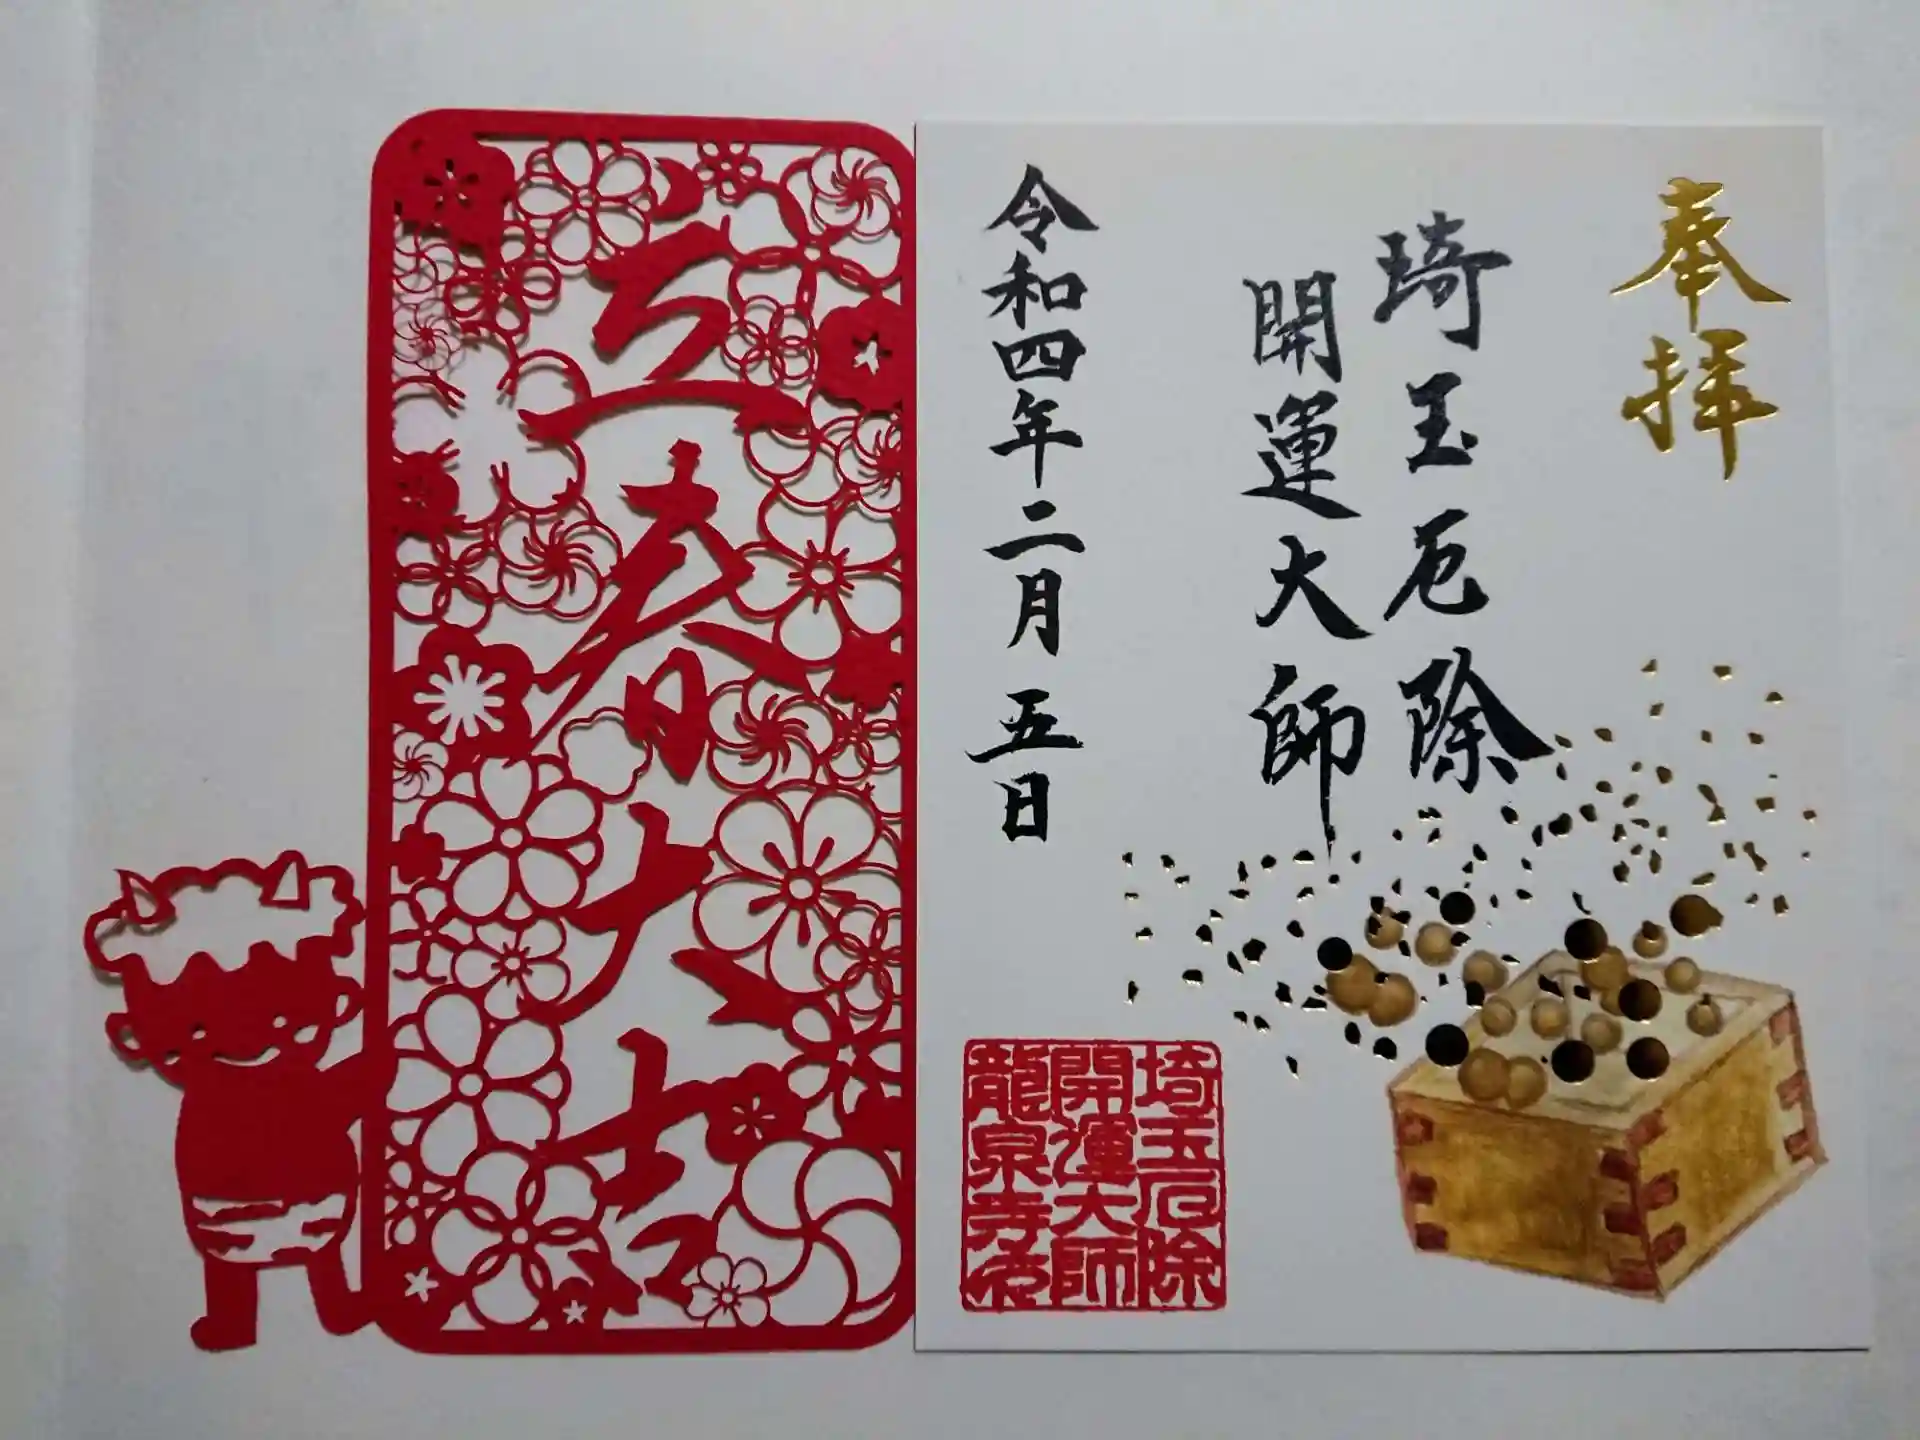 奉拝
琦玉厄除
開運大師
令和四年二月五日
埼玉厄除
開運大師
龍泉寺印
立春大吉